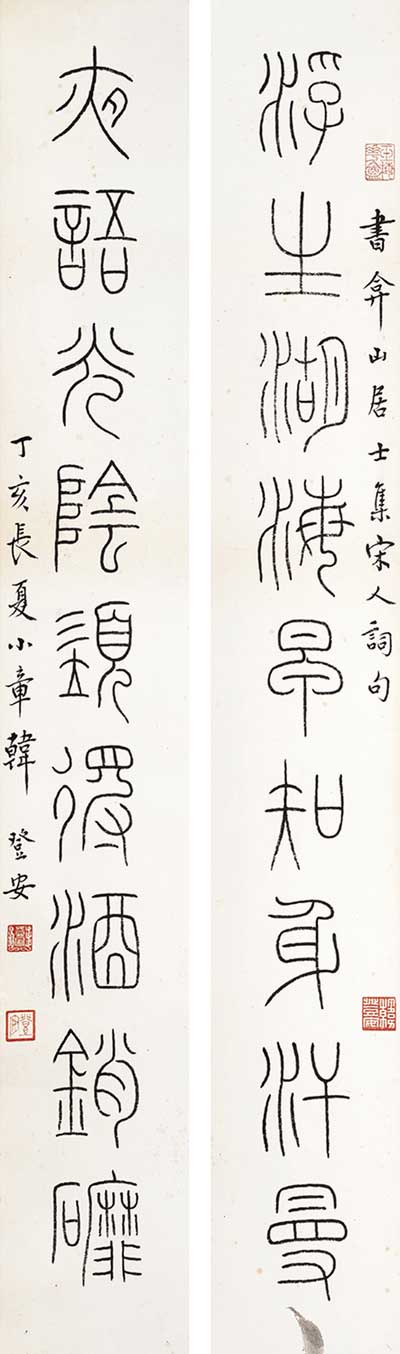 浮生湖海早知身汗曼
書弇山居士集宋人詞句
夜語光陰須得酒銷磨
丁亥長夏小章韓登安